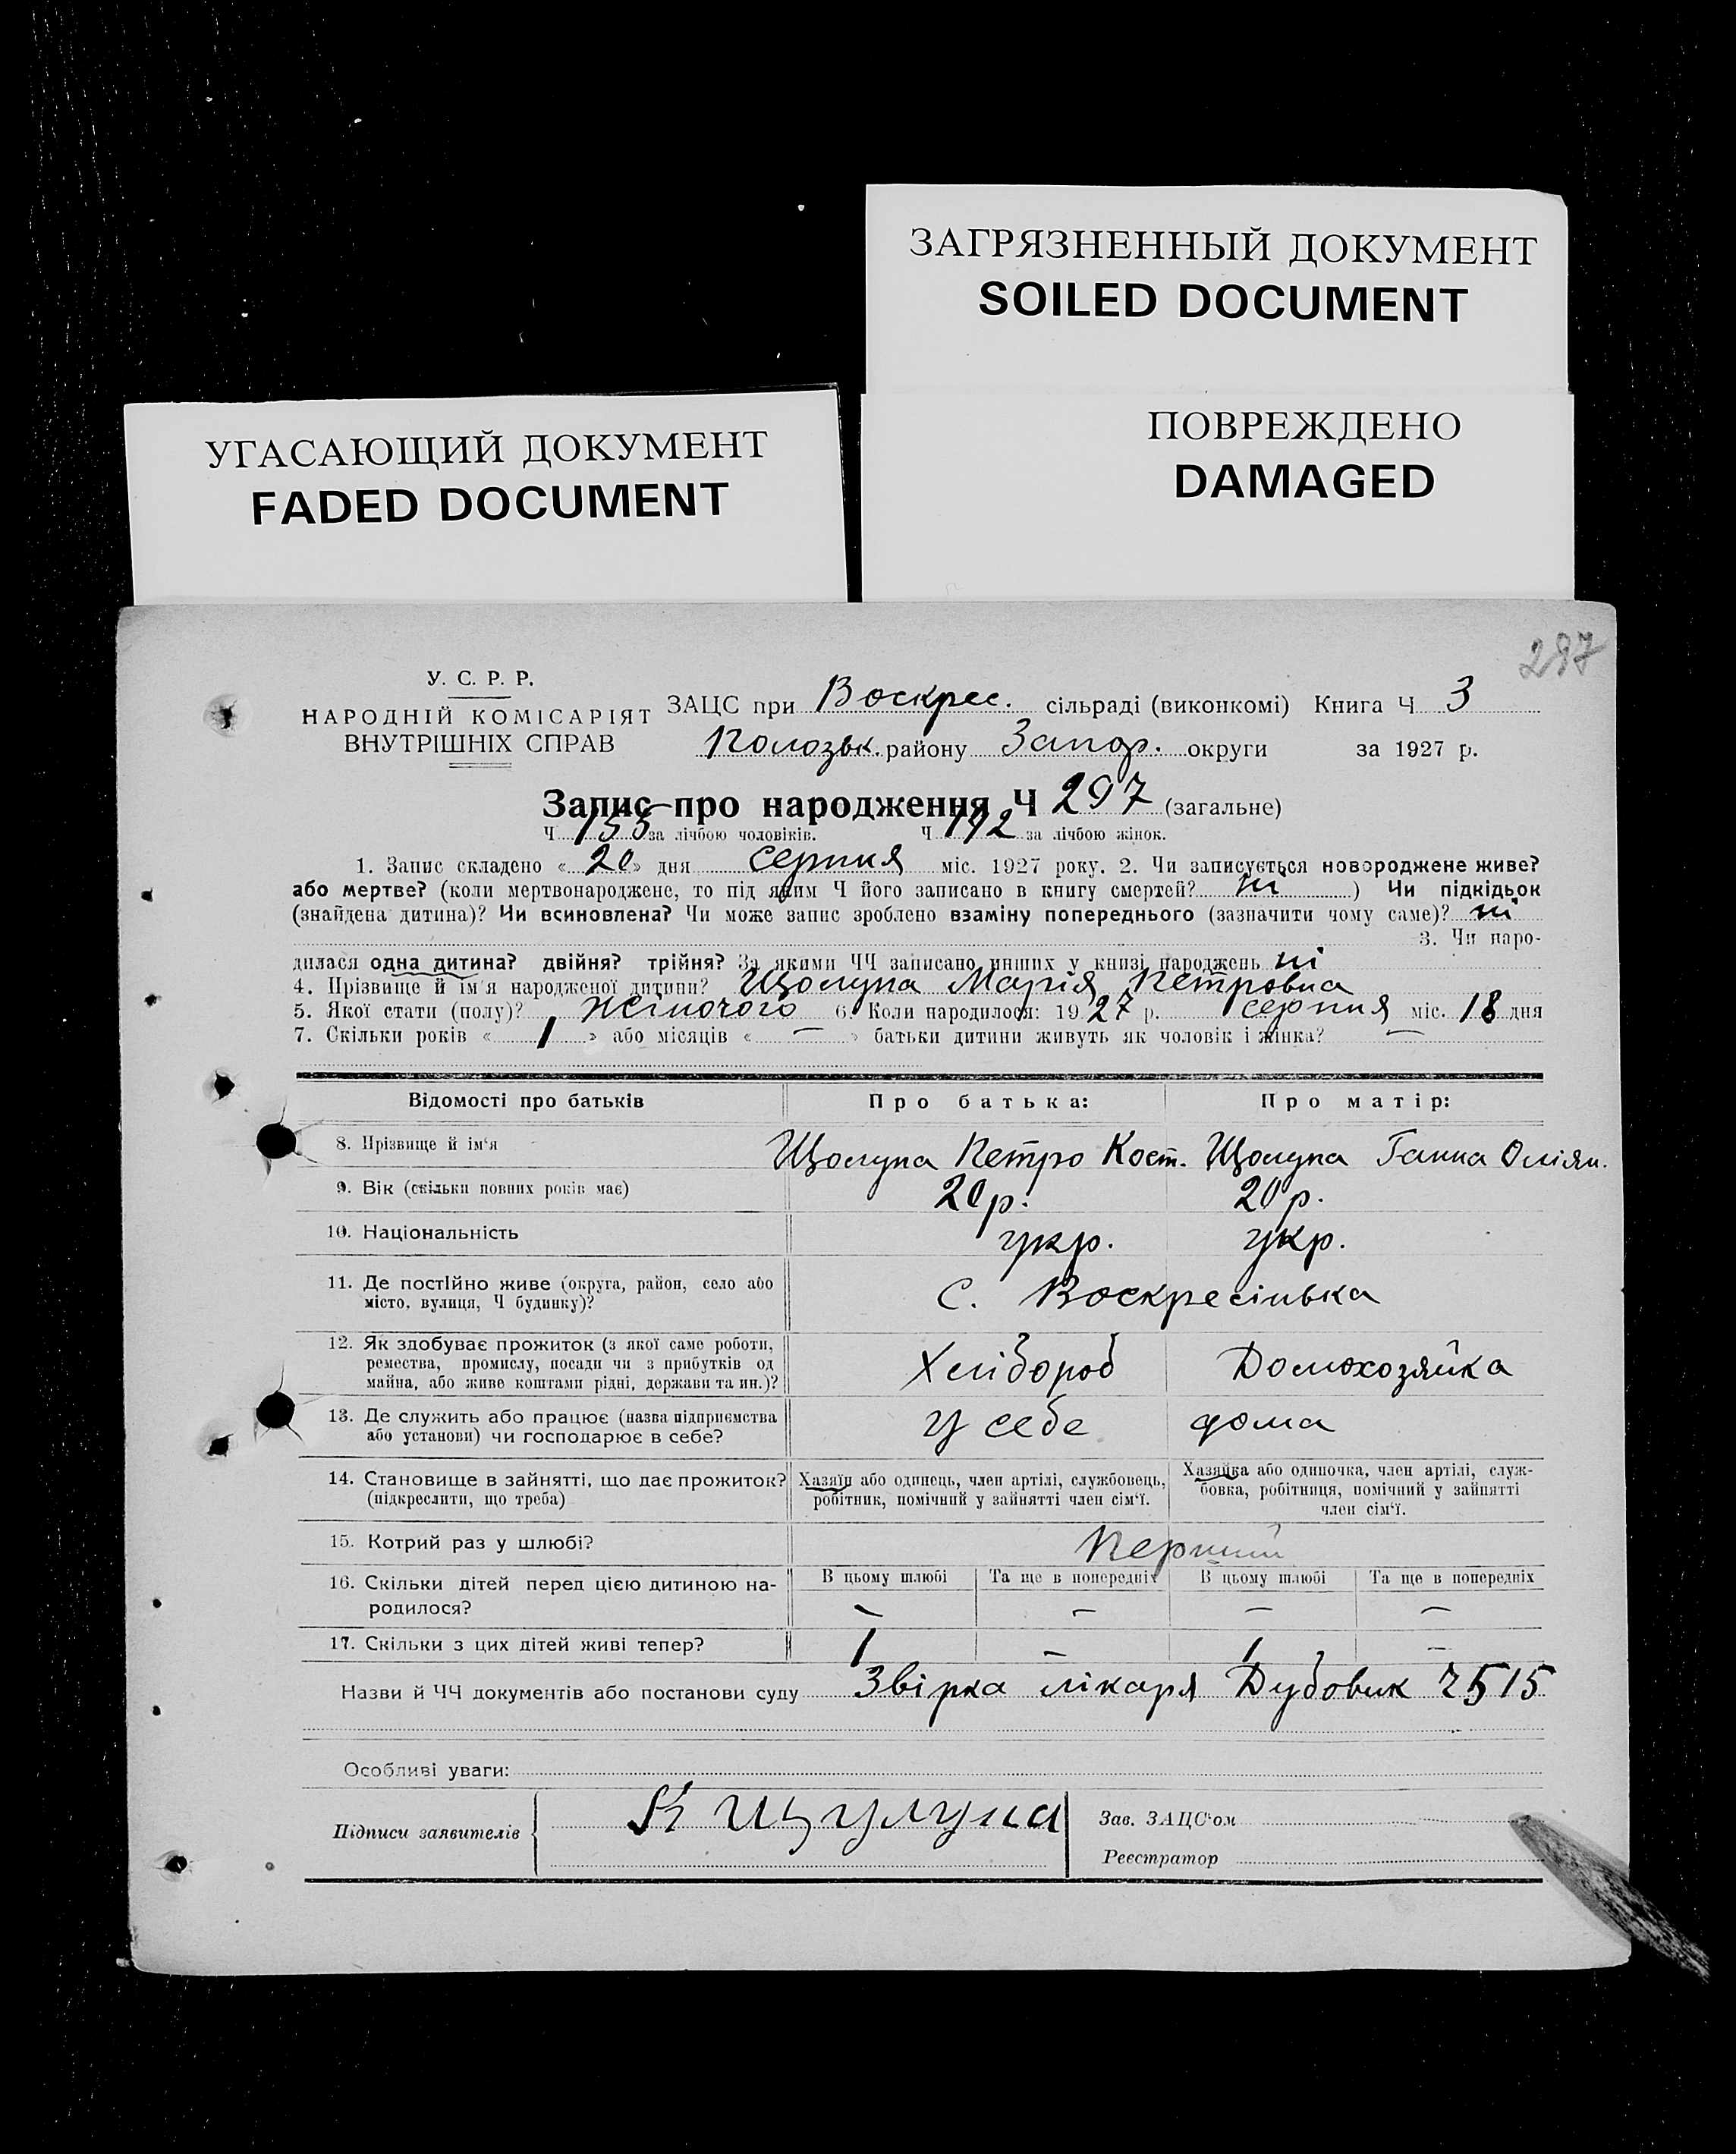 ЗАГРЯЗНЕННЫЙ ДОКУМЕНТ
SOILED DOCUMENT
ПОВРЕЖДЕНО
DAMAGED
УГАСАЮЩИЙ ДОКУМЕНТ
FADED DOCUMENT
297
У. С. Р. Р.
НАРОДНІЙ КОМІСАРІЯТ
ВНУТРІШНІХ СПРАВ
ЗАЦС при Воскрес. сільраді (виконкомі) Книга Ч 3
Пологівськ. району Запор. округи за 1927 р.
Запис про народження Ч 297 (загальне)
Ч 155 за лічбою чоловіків. Ч 142 за лічбою жінок.
1. Запис складено «20» дня серпня міс. 1927 року. 2. Чи записується новороджене живе?
або мертве? (коли мертвонароджене, то під яким Ч його записано в книгу смертей? ні ) Чи підкідьок
(знайдена дитина)? Чи всиновлена? Чи може запис зроблено взаміну попереднього (зазначити чому саме)? ні
3. Чи наро-
дилася одна дитина? двійня? трійня? За якими ЧЧ записано инших у книзі народжень ні
4. Прізвище й ім'я народженої дитини? Щолупа Марія Петровна
5. Якої стати (полу)? Жіночого 6. Коли народилося: 1927 р. серпня міс. 18 дня
7. Скільки років « 1 » або місяців « — » батьки дитини живуть як чоловік і жінка? —
Відомості про батьків Про батька: Про матір:
8. Прізвище й ім'я Щолупа Петро Кост. Щолупа Ганна Оліян.
9. Вік (скільки повних років має) 20 р. 20 р.
10. Національність укр. укр.
11. Де постійно живе (округа, район, село або
місто, вулиця, Ч будинку)? С. Воскресінька
12. Як здобуває прожиток (з якої саме роботи,
ремества, промислу, посади чи з прибутків од
майна, або живе коштами рідні, держави та ин.)? Хлібороб Домохозяйка
13. Де служить або працює (назва підприємства
або установи) чи господарює в себе? у себе дома
14. Становище в зайнятті, що дає прожиток?
(підкреслити, що треба)
Хазяїн або одинець, член артілі, службовець,
робітник, помічний у зайнятті член сім'ї.
Хазяйка або одиночка, член артілі, служ-
бовка, робітниця, помічний у зайнятті
член сім'ї.
15. Котрий раз у шлюбі? Перший
16. Скільки дітей перед цією дитиною на-
родилося?
В цьому шлюбі Та ще в попередніх В цьому шлюбі Та ще в попередніх
— — — —
17. Скільки з цих дітей живі тепер? 1 — 1 —
Назви й ЧЧ документів або постанови суду Звірка лікаря Дубовик 2515
Особливі уваги:
Підписи заявителів К Щулупа
Зав. ЗАЦС'ом
Реєстратор